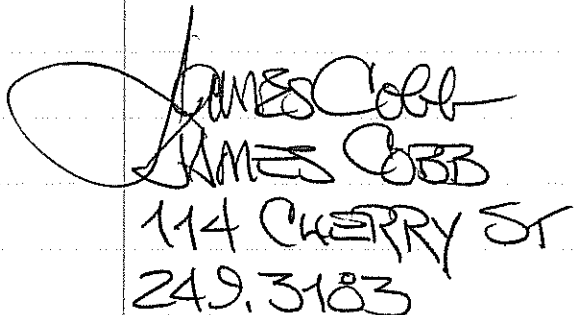 James Cobb
JAMES COBB
114 CHERRY ST
249.3183